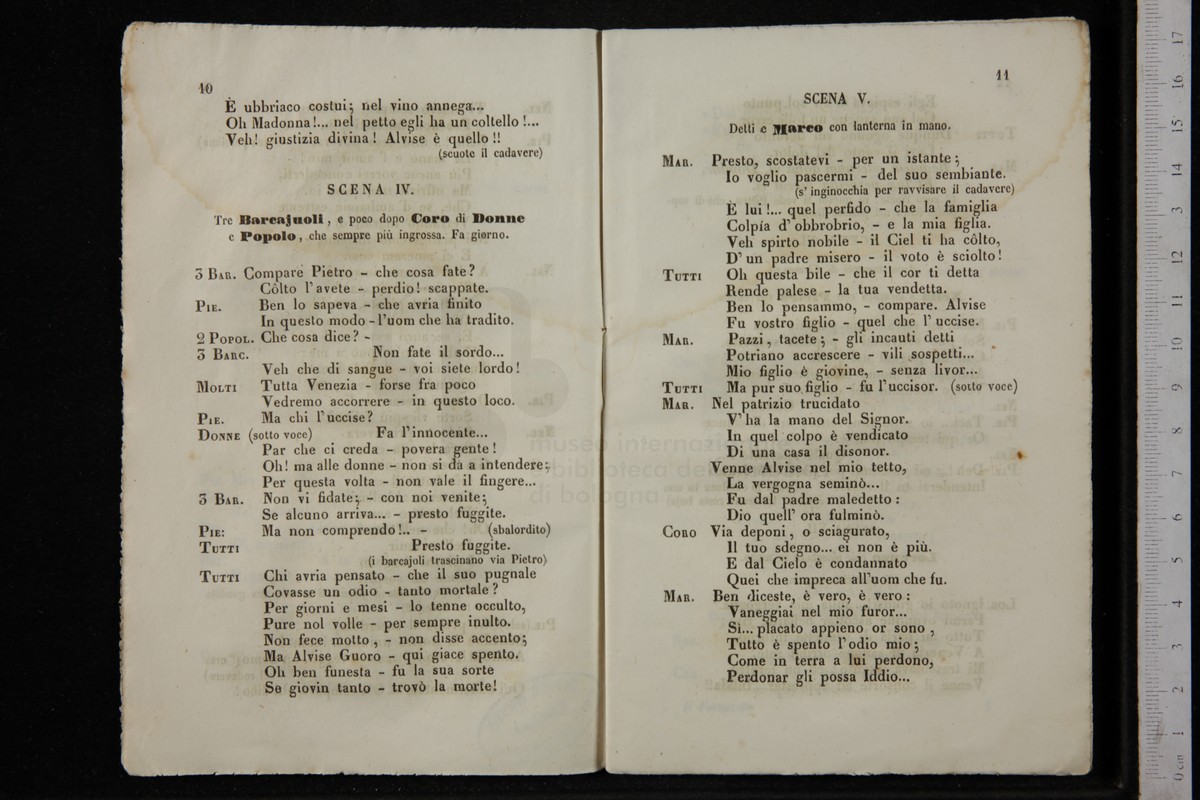 10
È ubbriaco costui; nel vino annega...
Oh Madonna!... nel petto egli ha un coltello!...
Veh! giustizia divina! Alvise è quello!!
(scuote il cadavere)
SCENA IV.
Tre Barcajuoli, e poco dopo Coro di Donne
e Popolo, che sempre più ingrossa. Fa giorno.
3 BAR. Compare Pietro - che cosa fate?
Côlto l'avete - perdio! scappate.
PIE. Ben lo sapeva - che avria finito
In questo modo - l'uom che ha tradito.
2 POPOL. Che cosa dice? -
3 BARC. Non fate il sordo...
Veh che di sangue - voi siete lordo!
MOLTI Tutta Venezia - forse fra poco
Vedremo accorrere - in questo loco.
PIE. Ma chi l'uccise?
DONNE (sotto voce) Fa l'innocente...
Par che ci creda - povera gente!
Oh! ma alle donne - non si dà a intendere;
Per questa volta - non vale il fingere...
3 BAR. Non vi fidate; - con noi venite;
Se alcuno arriva... - presto fuggite.
PIE: Ma non comprendo!.. - (sbalordito)
TUTTI Presto fuggite.
(i barcajoli trascinano via Pietro)
TUTTI Chi avria pensato - che il suo pugnale
Covasse un odio - tanto mortale?
Per giorni e mesi - lo tenne occulto,
Pure nol volle - per sempre inulto.
Non fece motto, - non disse accento;
Ma Alvise Guoro - qui giace spento.
Oh ben funesta - fu la sua sorte
Se giovin tanto - trovò la morte!
11
SCENA V.
Detti e Marco con lanterna in mano.
MAR. Presto, scostatevi - per un istante;
Io voglio pascermi - del suo sembiante.
(s' inginocchia per ravvisare il cadavere)
È lui!... quel perfido - che la famiglia
Colpía d' obbrobrio, - e la mia figlia.
Veh spirto nobile - il Ciel ti ha côlto,
D' un padre misero - il voto è sciolto!
TUTTI Oh questa bile - che il cor ti detta
Rende palese - la tua vendetta.
Ben lo pensammo, - compare. Alvise
Fu vostro figlio - quel che l' uccise.
MAR. Pazzi, tacete; - gli incauti detti
Potriano accrescere - vili sospetti...
Mio figlio è giovine, - senza livor...
TUTTI Ma pur suo figlio - fu l'uccisor. (sotto voce)
MAR. Nel patrizio trucidato
V' ha la mano del Signor.
In quel colpo è vendicato
Di una casa il disonor.
Venne Alvise nel mio tetto,
La vergogna seminò...
Fu dal padre maledetto:
Dio quell' ora fulminò.
CORO Via deponi, o sciagurato,
Il tuo sdegno... ei non è più.
E dal Cielo è condannato
Quei che impreca all'uom che fu.
MAR. Ben diceste, è vero, è vero:
Vaneggiai nel mio furor...
Sì... placato appieno or sono,
Tutto è spento l'odio mio;
Come in terra a lui perdono,
Perdonar gli possa Iddio...